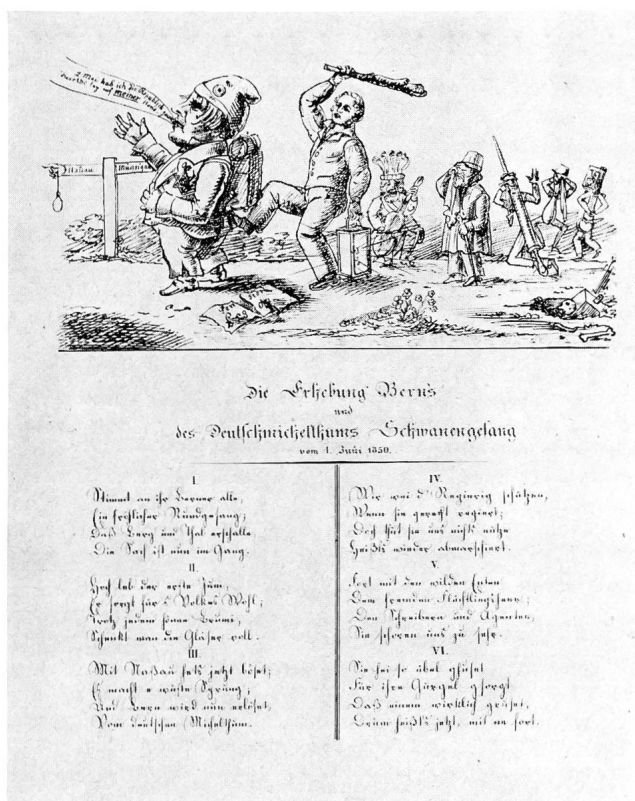 hab ich die
auf meiner
Die Erhebung Bern's
und
des Deutschmichelthums Schwanengesang
vom 1. Juni 1850.
I.
Stimmet an ihr Berner alle,
Ein fröhlicher Rundgesang;
Daß Berg und Thal erschalle
Die Sach ist nun im Gang.
II.
Hoch leb der erste Juni,
Er sorgt für's Volkes Wohl;
Trotz jedem
Schenkt man die Gläser voll.
III.
Mit Naßau jetzt böset;
Er macht e wüste Sprüng;
Und Bern wird nun erlöset,
Vom deutschen Michelthum.
IV.
Mir wei d' Regierig schützen,
Wenn sie gerecht regiert;
Doch thut sie uns nichts nütze
Heißt's wieder abmarschiert.
V.
Fort mit den wilden Enten
Dem fremden
Den Schreibern und Agenten,
Sie schoren uns zu sehr.
VI.
Sie hei so übel ghuset
Für ihre Gurgel gsorgt
Daß einem wirklich gruset,
Drum heißt's jetzt, mit ne fort.